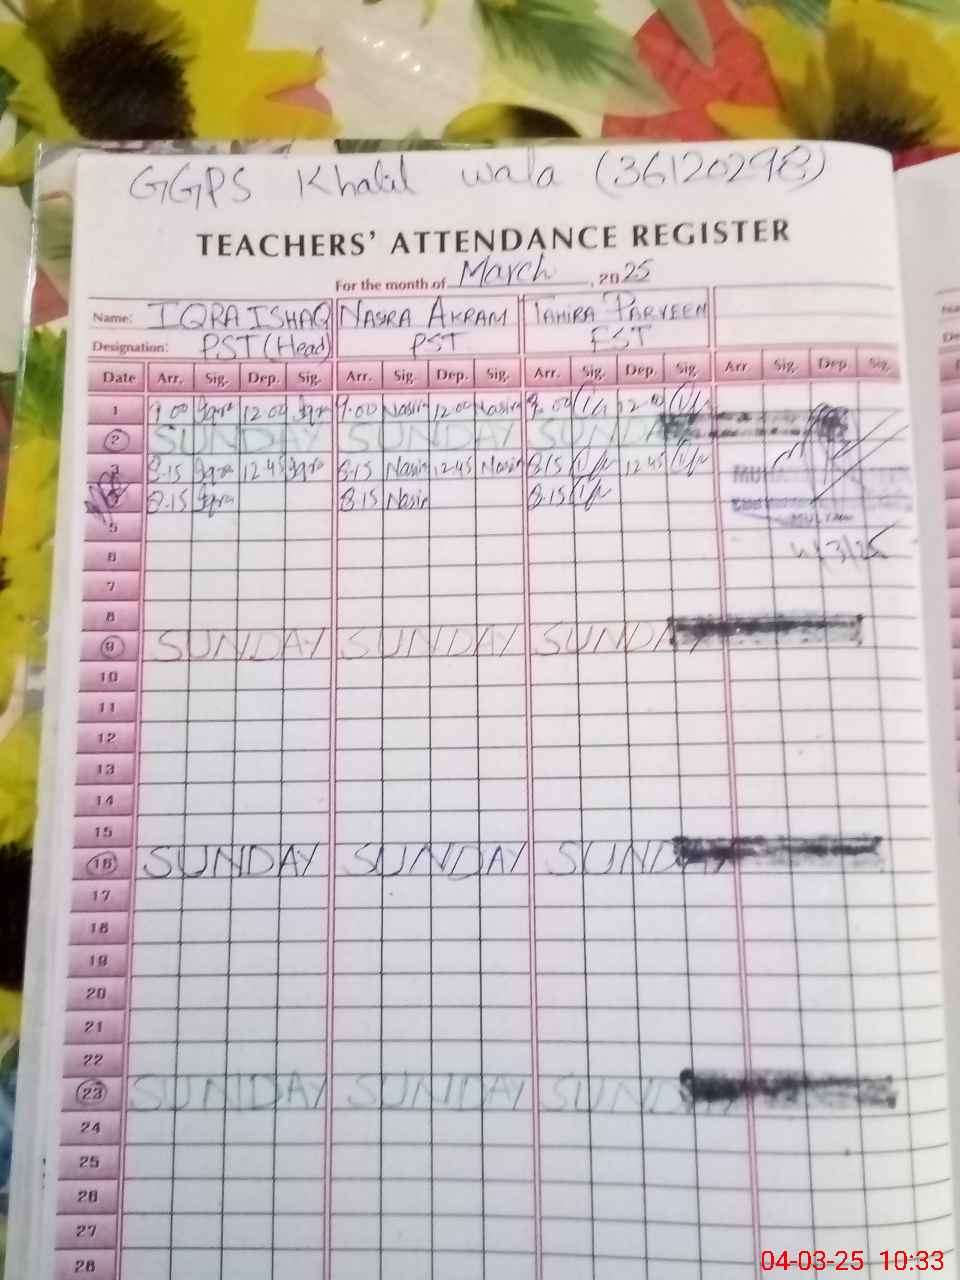 GGPS Khalil wala (36120298)
TEACHERS' ATTENDANCE REGISTER
For the month of March, 2025
Name: IQRA ISHAQ NASRA AKRAM TAHIRA PARVEEN
Designation: PST (Head) PST EST
Date Arr. Sig. Dep. Sig. Arr. Sig. Dep. Sig. Arr. Sig. Dep. Sig. Arr Sig. Dep Sig.
1 9.00 Iqra 12.00 Iqra 9.00 Nasra 12.00 Nasra 9.00 12.00
2 SUNDAY SUNDAY SUNDAY
3 8.15 Iqra 12.45 Iqra 8.15 Nasra 12.45 Nasra 8.15 12.45
8.15 Iqra 8.15 Nasra 8.15
5
MULTAN
6
4/3/25
7
8
9 SUNDAY SUNDAY SUNDAY
10
11
12
13
14
15
16 SUNDAY SUNDAY SUNDAY
17
18
19
20
21
22
23 SUNDAY SUNDAY SUNDAY
24
25
26
27
28
04-03-25 10:33